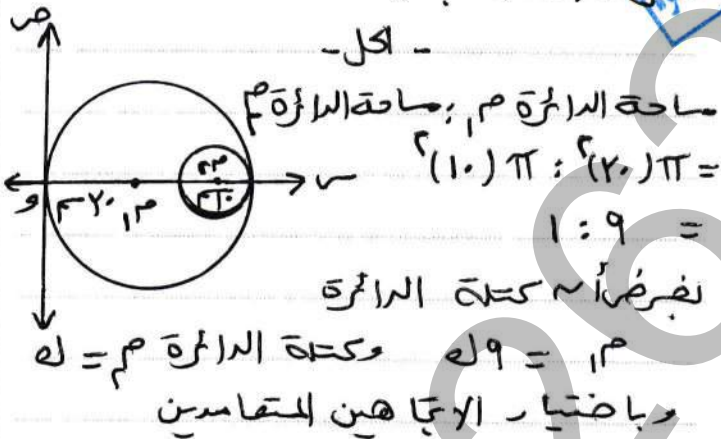 - الحل -
ص
مساحة الدائرة م١ : مساحة الدائرة م٢
= π(٣٠)٢ : π(١٠)٢
= ٩ : ١
نفرض أن كتلة الدائرة
م١ = ٩ك وكتلة الدائرة م٢ = ك
وباختيار الاتجاهين المتعامدين
س
و
م١
م٢